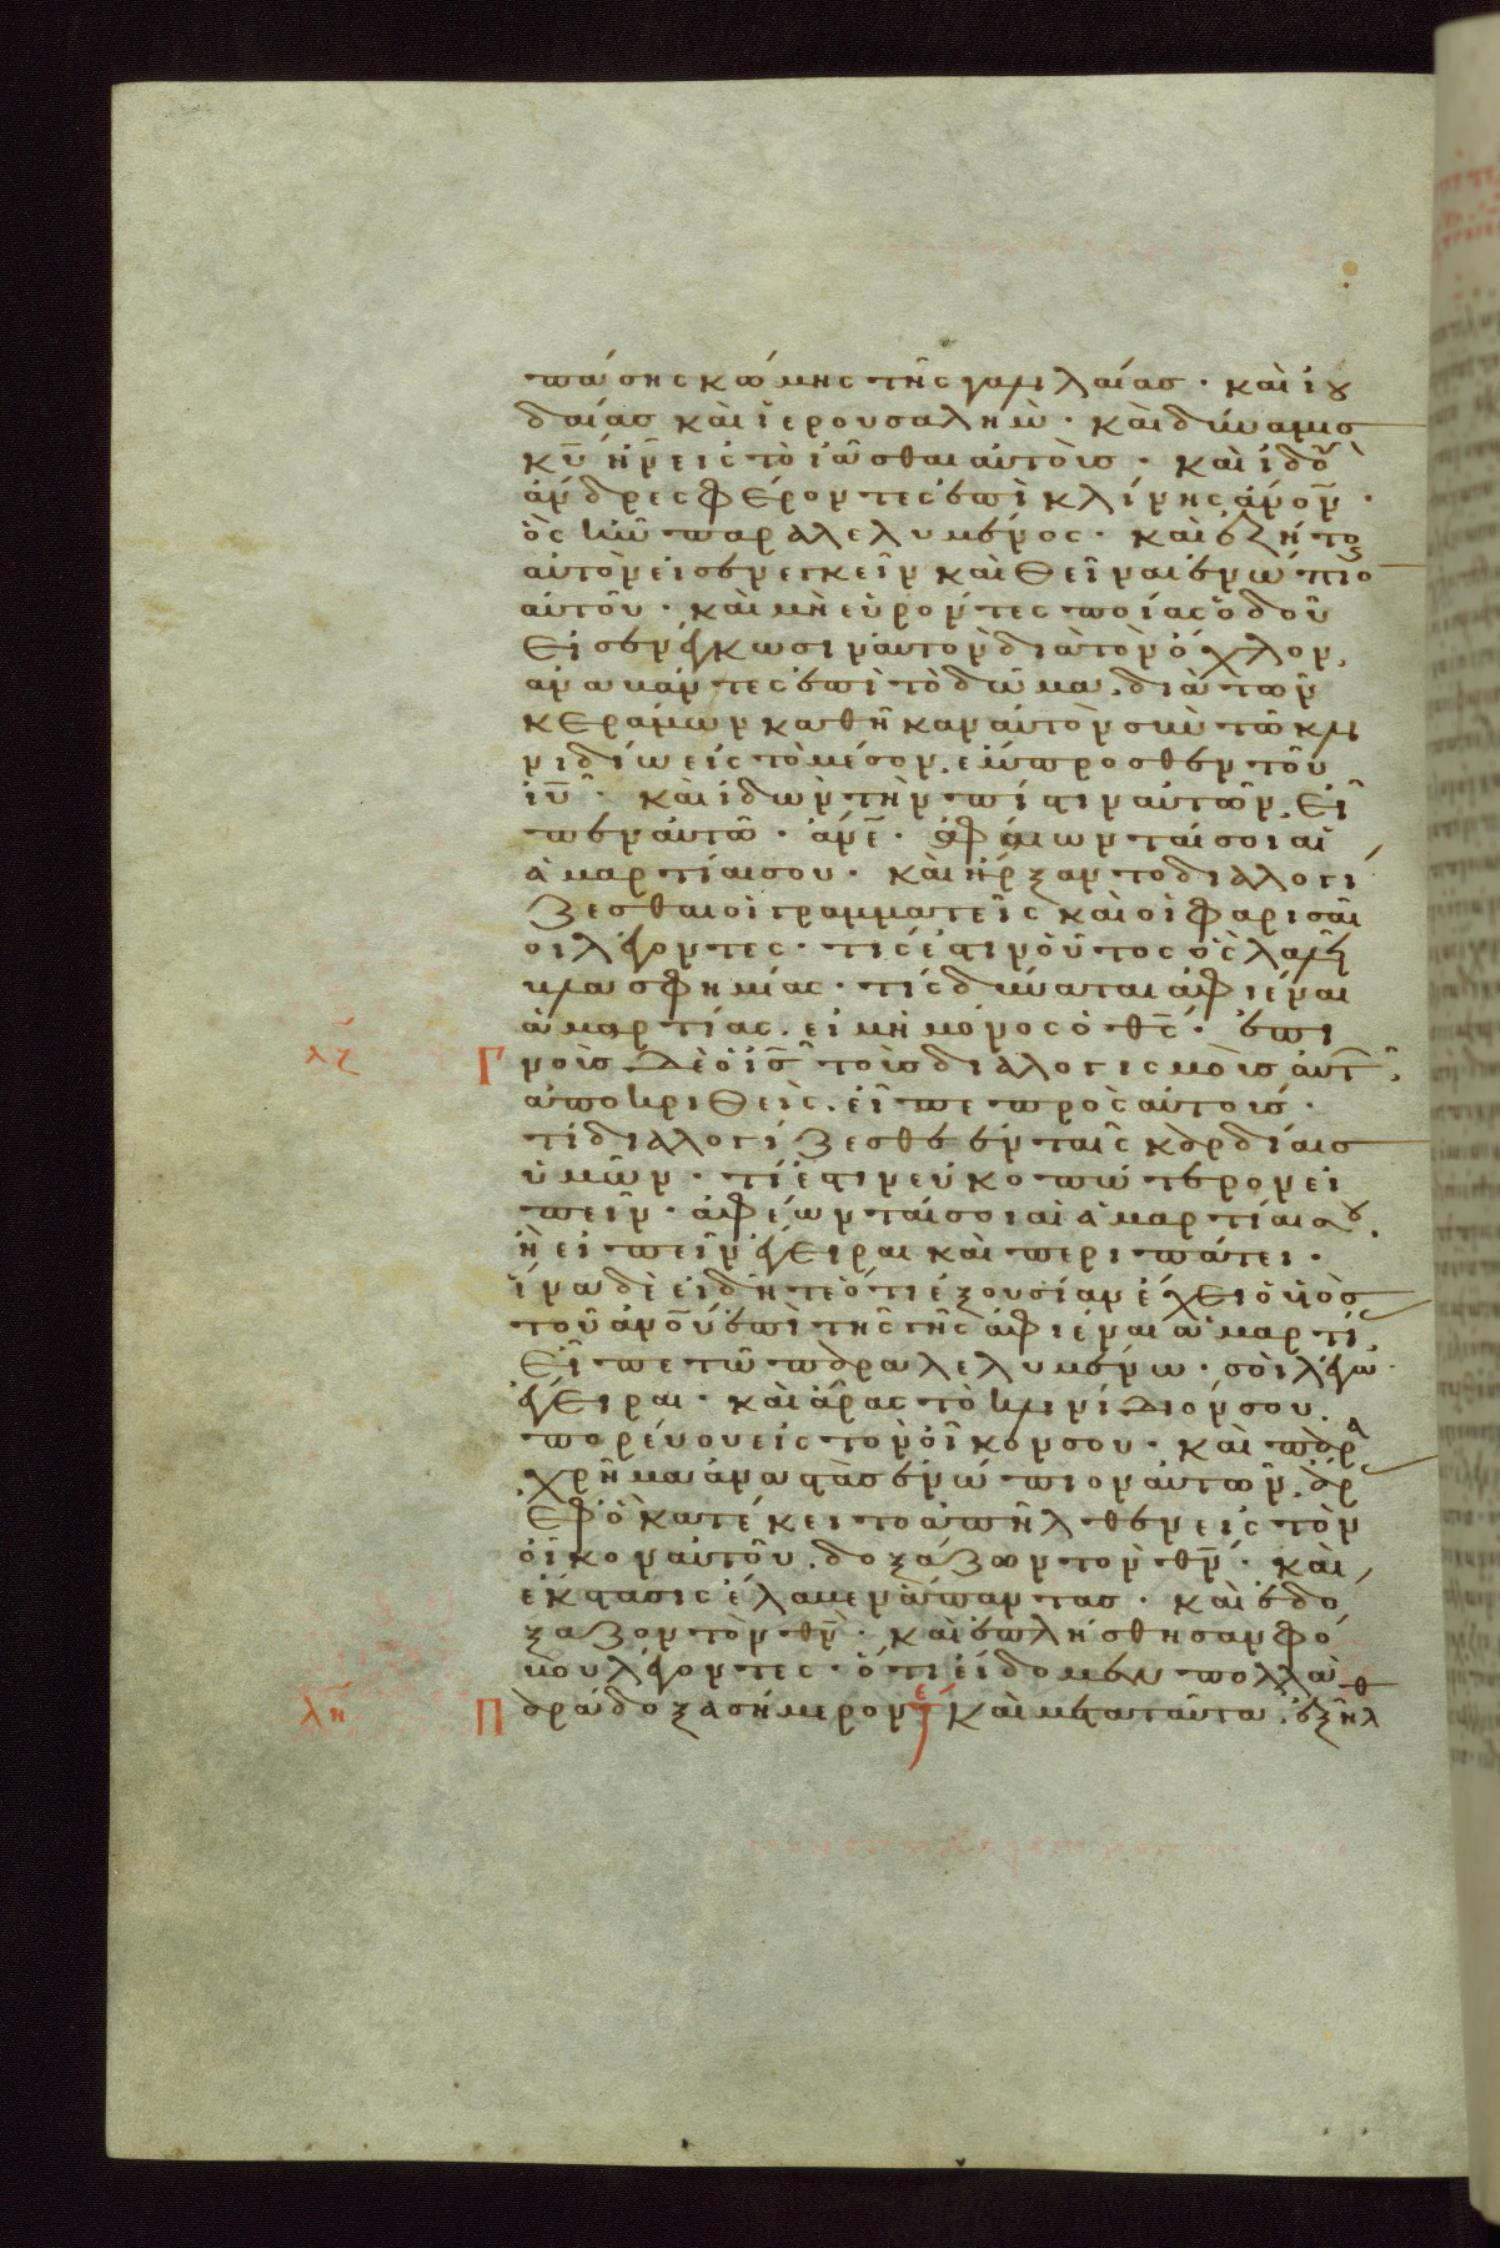 πάσης κώμης τῆς γαλιλαίας · καὶ ἰου
δαίας καὶ ἱερουσαλήμ · καὶ δύναμις
κ̅υ̅ ἦν εἰς τὸ ἰᾶσθαι αὐτούς · καὶ ἰδοὺ
ἄνδρες φέροντες ἐπὶ κλίνης ἄν̅ο̅ν̅ ·
ὃς ἦν παραλελυμένος · καὶ ἐζήτουν
αὐτὸν εἰσενεγκεῖν καὶ θεῖναι ἐνώπιο
αὐτοῦ · καὶ μὴ εὑρόντες ποίας ὁδοῦ
εἰσενέγκωσιν αὐτὸν διὰ τὸν ὄχλον,
ἀναβάντες ἐπὶ τὸ δῶμα, διὰ τῶν
κεράμων καθῆκαν αὐτὸν σὺν τῷ κλι
νιδίω εἰς τὸ μέσον, ἔμπροσθεν τοῦ
ι̅υ̅ · καὶ ἰδὼν τὴν πίστιν αὐτῶν, εἶ
πεν αὐτῶ · ἄν̅ε̅ · ἀφέωνταί σοι αἱ
ἁμαρτίαι σου · καὶ ἤρξαντο διαλογί
ζεσθαι οἱ γραμματεῖς καὶ οἱ φαρισαῖ
οι λέγοντες · τίς ἐστιν οὗτος ὃς λαλεῖ
βλασφημίας · τίς δύναται ἀφιέναι
ἁμαρτίας, εἰ μὴ μόνος ὁ θ̅ς̅ · ἐπι
λζ Γ νοὺς δὲ ὁ ι̅ς̅ τοὺς διαλογισμοὺς αὐτῶν,
ἀποκριθεὶς, εἶπε πρὸς αὐτούς ·
τί διαλογίζεσθε ἐν ταῖς καρδίαις
ὑμῶν · τί ἐστιν εὐκοπώτερον εἰ
πεῖν · ἀφέωνταί σοι αἱ ἁμαρτίαι σου,
ἢ εἰπεῖν ἔγειραι καὶ περιπάτει ·
ἵνα δὲ εἰδῆτε ὅτι ἐξουσίαν ἔχει ὁ υἱὸς
τοῦ ἀν̅ο̅υ̅ ἐπὶ τῆς γῆς ἀφιέναι ἁμαρτί,
εἶπε τῶ παραλελυμένω · σοὶ λέγω ·
ἔγειραι · καὶ ἄρας τὸ κλινίδιόν σου,
πορεύου εἰς τὸν οἶκόν σου · καὶ παρα
χρῆμα ἀναστὰς ἐνώπιον αὐτῶν, ἄρας
ἐφ' ὃ κατέκειτο ἀπῆλθεν εἰς τὸν
οἶκον αὐτοῦ, δοξάζων τὸν θ̅ν̅ · καὶ
ἔκστασις ἔλαβεν ἅπαντας · καὶ ἐδό
ξαζον τὸν θ̅ν̅ · καὶ ἐπλήσθησαν φό
βου λέγοντες · ὅτι εἴδομεν πολλὰ
λη Π αράδοξα σήμερον τε Καὶ μετὰ ταῦτα, ἐξῆλθ